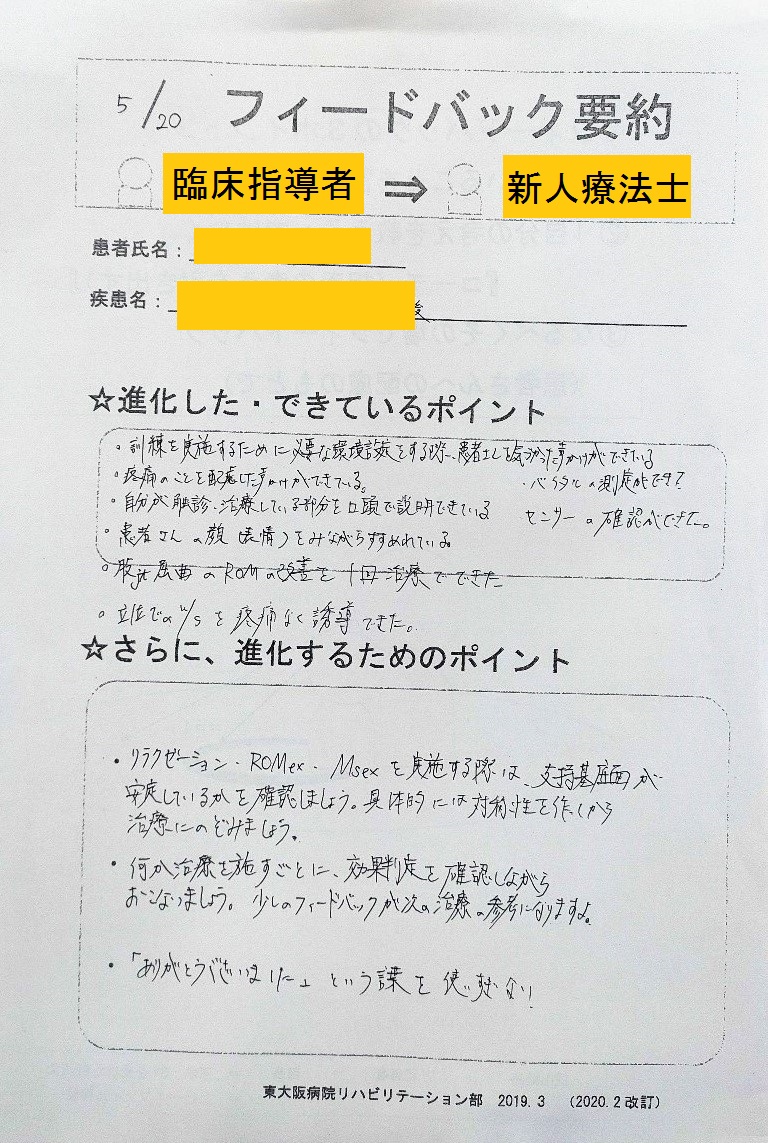 5/20 フィードバック要約
臨床指導者 ⇒ 新人療法士
患者氏名：
疾患名： 後
☆進化した・できているポイント
・訓練を実施するために必要な環境設定をする際、患者さんを気づかった声かけができている
・疼痛のことを配慮した声かけができている。 ・バイタルの測定ができ
・自分が触診・治療している部分を口頭で説明できている センサーの確認ができた。
・患者さんの顔（表情）をみながらすすめれている。
。股jt屈曲のROMの改善を1回治療でできた
。立位でのw/sを疼痛なく誘導できた。
☆さらに、進化するためのポイント
・リラクゼーション・ROMex・Msexを実施する際は、支持基底面が
安定しているかを確認しましょう。具体的には対称性を作ってから
治療にのぞみましょう。
・何か治療を施すごとに、効果判定を確認しながら
おこないましょう。少しのフィードバックが次の治療の参考になりますよ。
・「ありがとうございました」という言葉を使いすぎない！
東大阪病院リハビリテーション部 2019.3 （2020.2改訂）